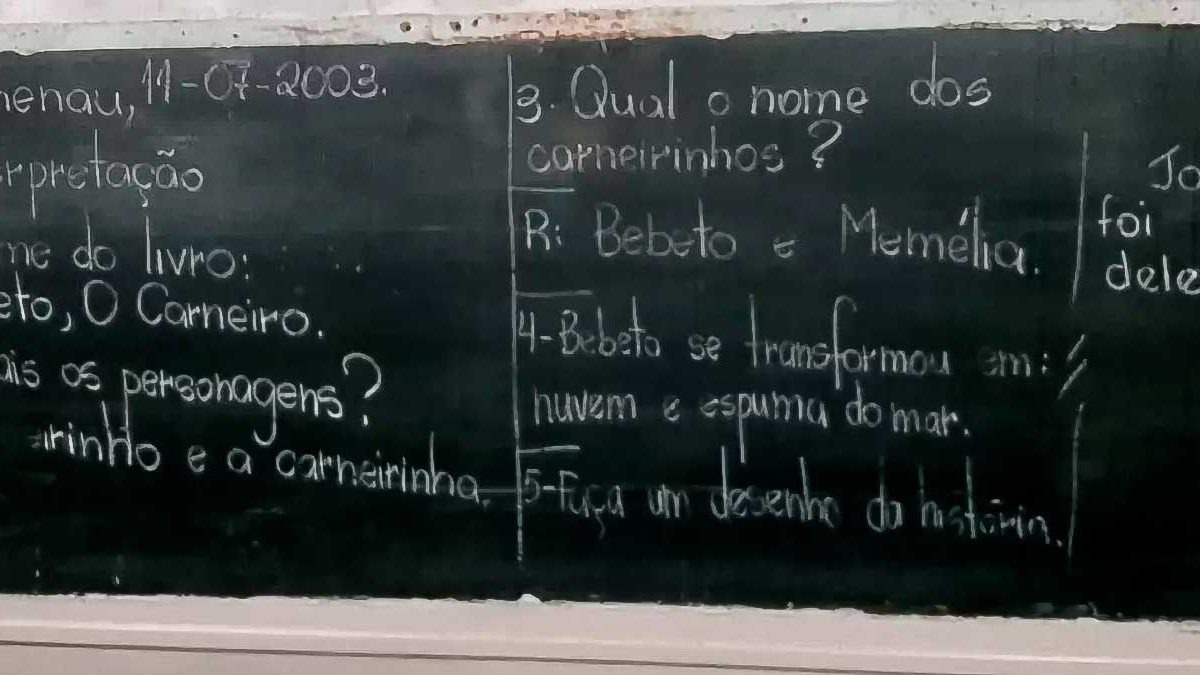 menau, 11-07-2003.
rpretação
me do livro:
eto, O Carneiro.
ais os personagens?
irinho e a carneirinha.
3. Qual o nome dos
carneirinhos?
R: Bebeto e Memélia.
4-Bebeto se transformou em:
nuvem e espuma do mar.
5-Faça um desenho da história.
Jo
foi
dele